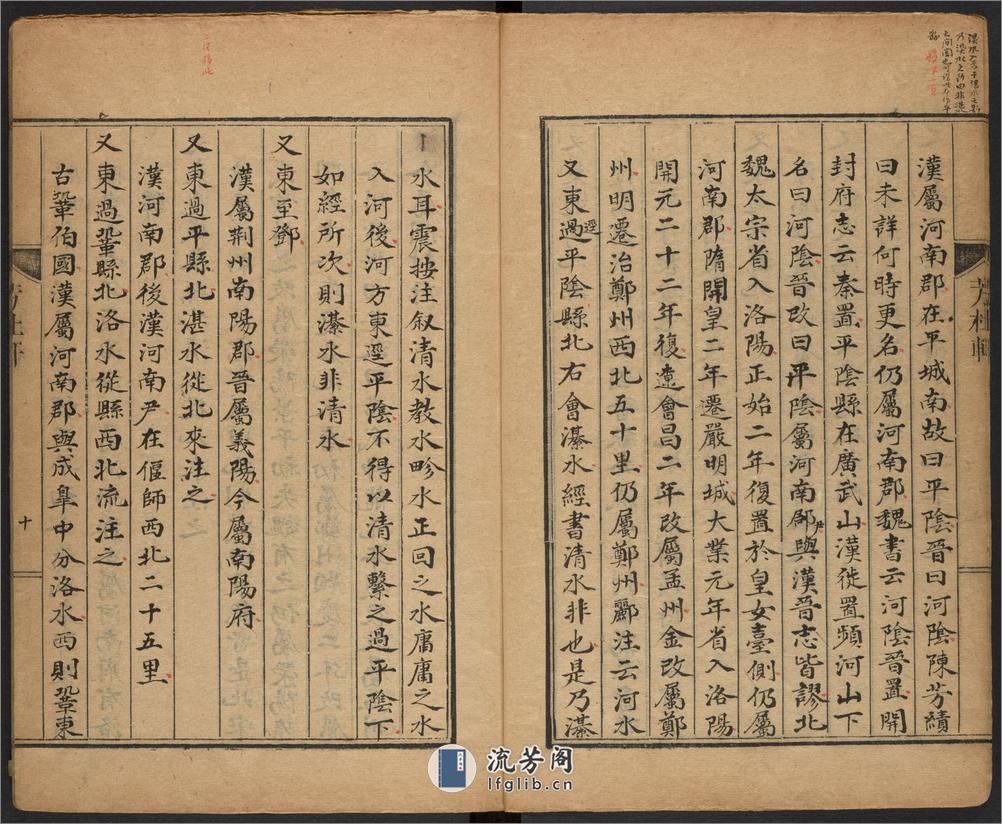 漢屬河南郡在平城南故曰平陰晉曰河陰陳芳績
曰未詳何時更名仍屬河南郡魏書云河陰晉置開
封府志云秦置平陰縣在廣武山漢徙置頻河山下
名曰河陰晉改曰平陰屬河南郡尹與漢晉志皆謬北
魏太宗省入洛陽正始二年復置於皇女臺側仍屬
河南郡隋開皇二年遷嚴明城大業元年省入洛陽
開元二十二年復遠會昌二年改屬孟州金改屬鄭
州明遷治鄭州西北五十里仍屬鄭州酈注云河水
又東逕過平陰縣北右會瀁水經書清水非也是乃瀁
芳杜軒
水耳震按注叙清水教水畛水正回之水庸庸之水
入河後河方東逕平陰不得以清水繫之過平陰下
如經所次則瀁水非清水
又東至鄧
漢屬荆州南陽郡晉屬義陽今屬南陽府
又東過平縣北湛水從北來注之
漢河南郡後漢河南尹在偃師西北二十五里
又東過鞏縣北洛水從縣西北流注之
古鞏伯國漢屬河南郡與成臯中分洛水西則鞏東
十
流芳阁
lfglib.cn